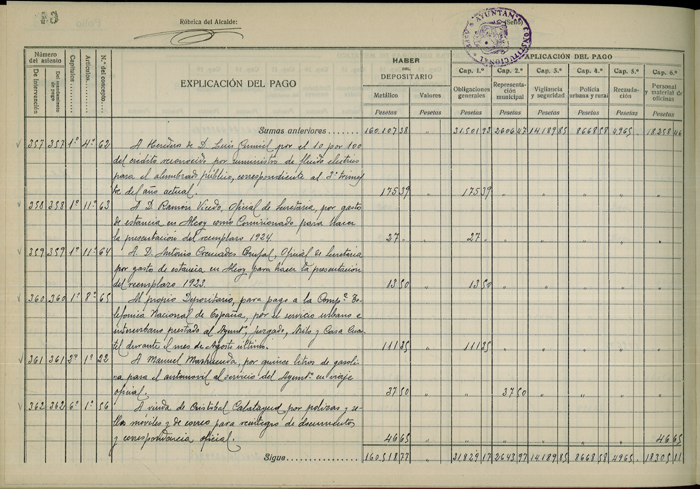 63
Rúbrica del Alcalde:
AYUNTAMIENTO CONSTITUCIONAL
Número del asiento
De intervención
Capítulos
Artículos
N.º del concepto
EXPLICACIÓN DEL PAGO
HABER DEL DEPOSITARIO
Metálico Valores
Pesetas Pesetas
APLICACIÓN DEL PAGO
Cap. 1.º Cap. 2.º Cap. 3.º Cap. 4.º Cap. 5.º Cap. 6.º
Obligaciones generales Representación municipal Vigilancia y seguridad Policía urbana y rural Recaudación Personal y material de oficinas
Pesetas Pesetas Pesetas Pesetas Pesetas Pesetas
Sumas anteriores 160.107 38 " 31.501 93 2606 47 14189 85 8668 58 4965 18258 46
357 357 1º 4º 62 A Herederos de D. Luis por el 10 por 100
del crédito reconocido por suministro de fluido eléctrico
para el alumbrado público, correspondiente al 2º trimes-
tre del año actual. 175 39 " 175 39
358 358 1º 11º 63 A D. Ramón Vicedo, Oficial de Secretaría, por gastos
de estancia en Alcoy como Comisionado para hacer
la presentación del reemplazo 1924. 27 " 27
359 359 1º 11º 64 A D. Antonio Cremades, Oficial de Secretaría
por gastos de estancia en Alcoy para hacer la presentación
del reemplazo 1923. 13 50 " 13 50
360 360 1º 8º 65 Al propio Depositario, para pago a la Compª. Te-
lefónica Nacional de España, por el servicio urbano e
interurbano prestado al Ayuntº, Juzgado, y Casa Cuar-
tel durante el mes de Agosto último. 111 35 " 111 35
361 361 2º 1º 22 A Manuel, por quince litros de gasoli-
na para el automóvil al servicio del Ayuntº. en viaje
oficial. 37 50 " 37 50
362 362 6º 1º 56 A viuda de Cristóbal Calatayud, por pólizas y se-
llos móviles y de correo, para reintegro de documentos
y correspondencia oficial. 46 65 " 46 65
Sigue 160518 77 31829 17 2643 97 14189 85 8668 58 4965 18305 11